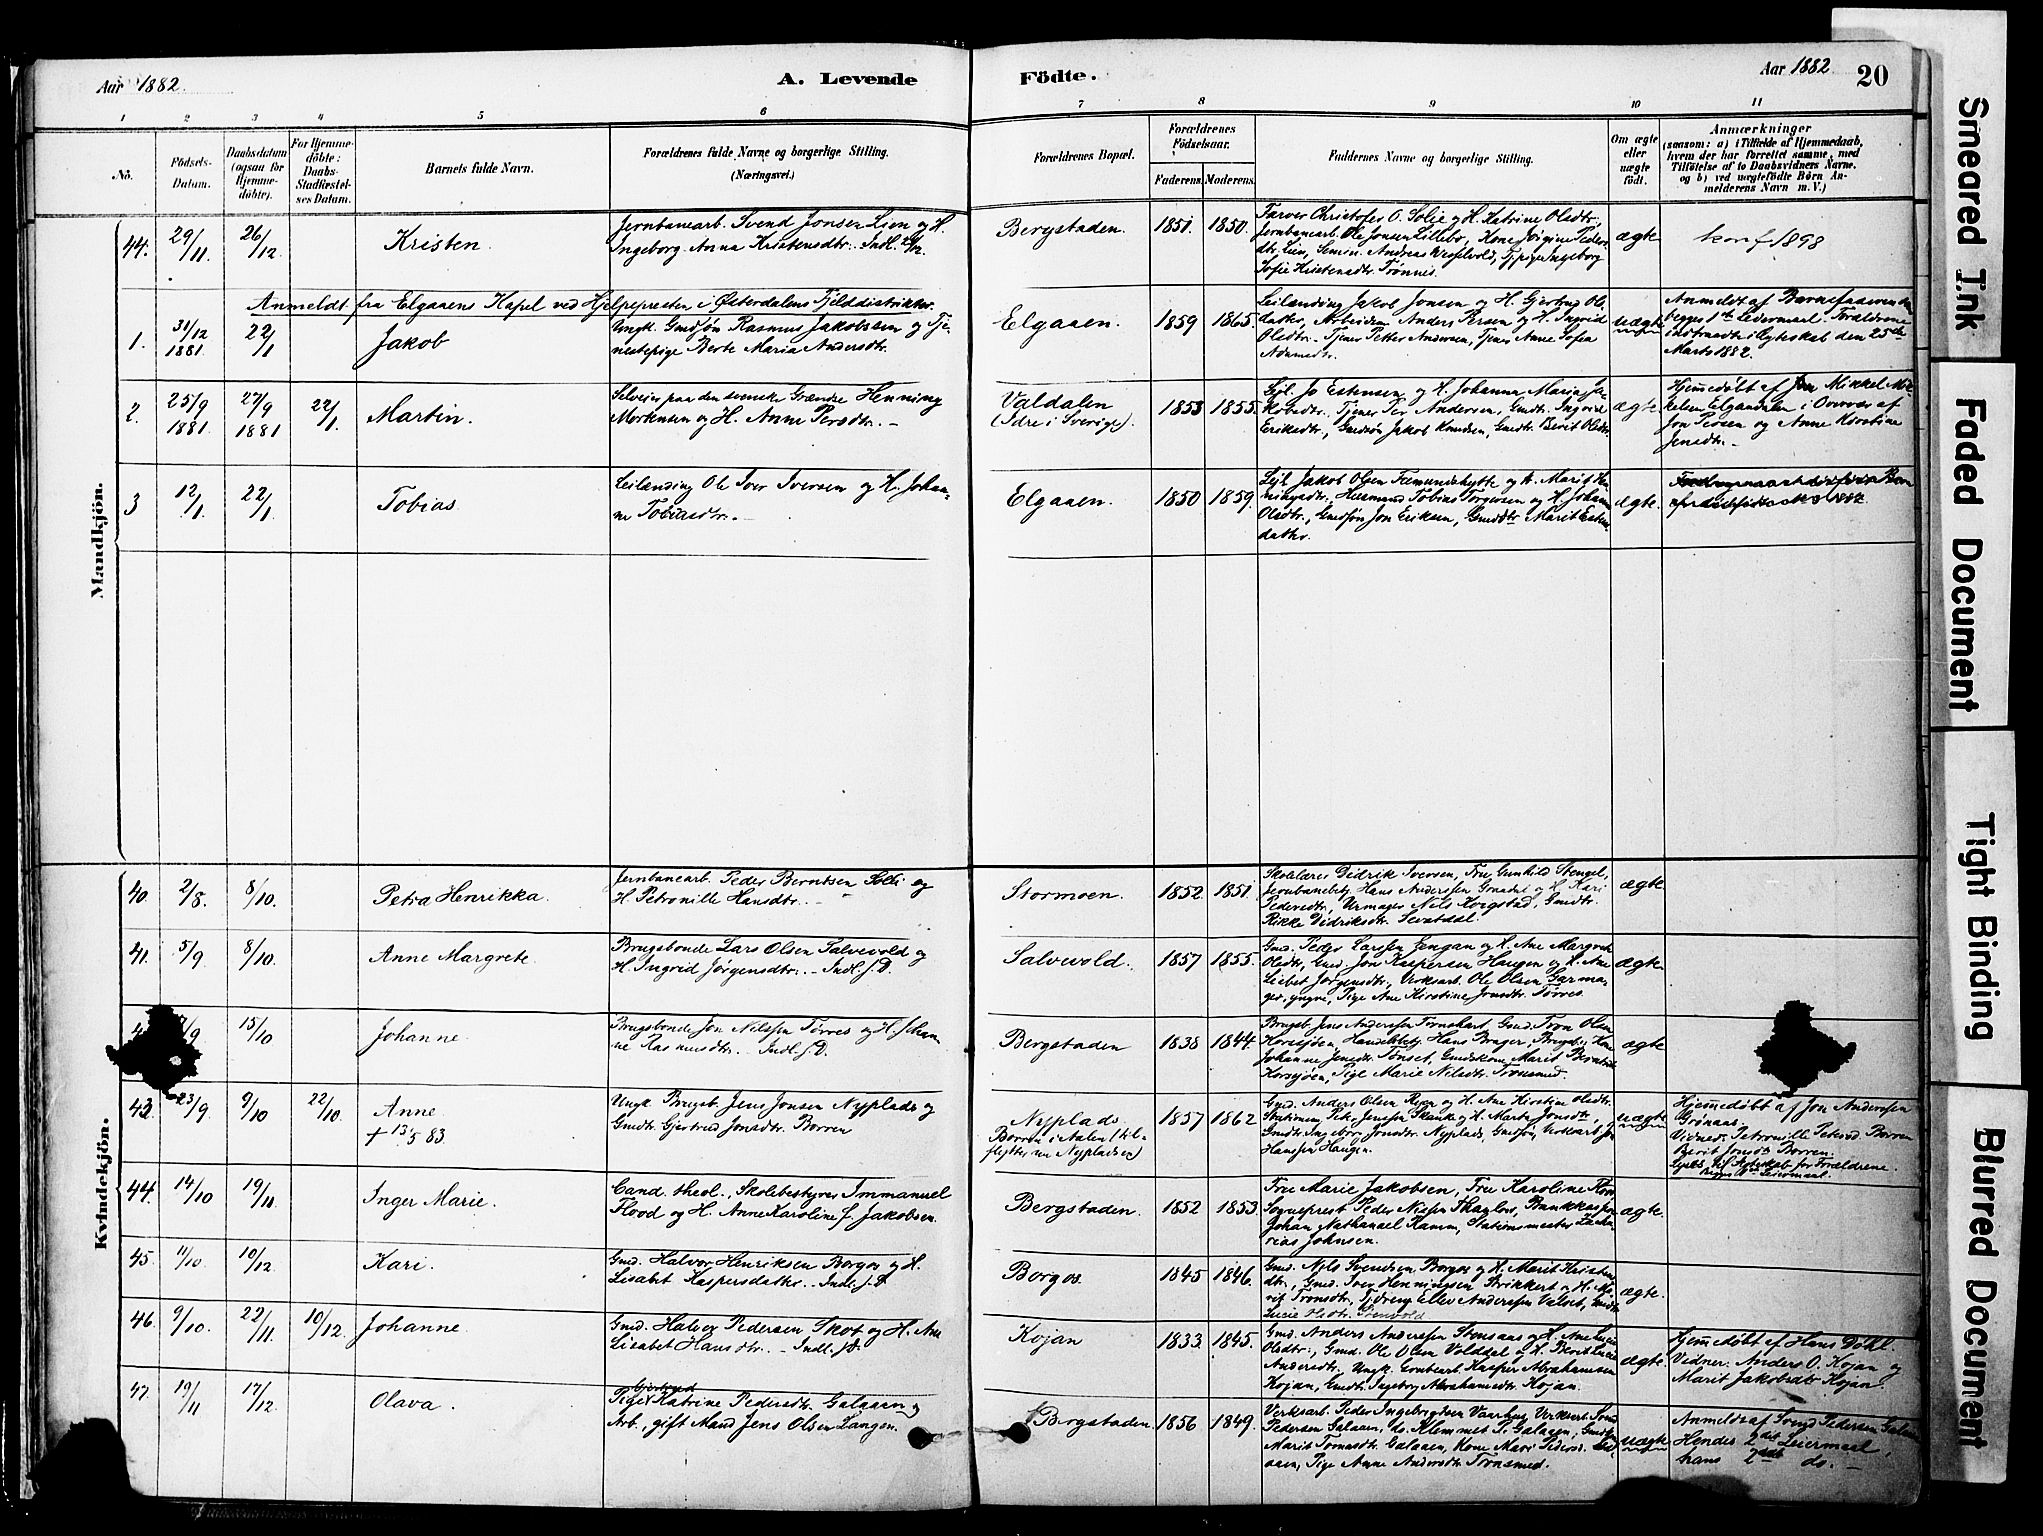 Aar 1882.
A. Levende
Födte.
Aar 1882
20
1 2 3 4 5 6 7 8 9 10 11
No.
Födsels-
Datum.
Daabsdatum
(ogsaa for
Hjemme-
döbte).
For Hjemme-
döbte:
Daabs-
Stadfæstel-
ses Datum.
Barnets fulde Navn.
Forældrenes fulde Navne og borgerlige Stilling.
(Næringsvei.)
Forældrenes Bopæl.
Forældrenes
Födselsaar.
Faderens. Moderens.
Faddernes Navne og borgerlige Stilling.
Om ægte
eller
uægte
födt.
Anmærkninger
(saasom: a) i Tilfælde af Hjemmedaab,
hvem der har forrettet samme, med
Tilföielse af to Daabsvidners Navne.
og b) ved uægtefödte Börn An-
melderens Navn m. V.)
Mandkjön.
44. 29/11 26/12 Kristen.
Jernbanearb. Svend Jonsen Lien og H.
Ingeborg Anna Kristensdtr. Indl.
Bergstaden. 1851. 1850.
Farver Christofer O. Solie og H. Katrine Olsdtr.,
Jernbanearb. Ole Jonsen Lillebo, Kone Jørgine Peders-
dtr. Lien, Semin. Andreas Vespelvold, Tj.pige Ingeborg
Sofie Kristensdtr. Trønnes.
ægte
konf 1898
Anmeldt fra Elgaaens Kapel ved Hjelpepresten i Østerdalens Fjelddistrikter.
1. 31/12 1881. 22/1 Jakob
Ungk. Gaardsøn Rasmus Jakobsen og Tje-
nestepige Berte Maria Andersdtr.
Elgaaen. 1859 1865.
Leilænding Jakob Jonsen og H. Gjertrud Ols-
datter, Arbeider Anders Persen og H. Ingrid
Olsdtr. Tjener Petter Andersen, Tjener Anne Sofia
Adamsdtr.
uægte
Anmeldt af Barnefaderen
begges 1ste Leiermaal. Forældrene
indtraadte i Ægteskab den 25de
Marts 1882.
2. 25/9 1881. 27/9 1881 22/1. Martin.
Selveier paa den svenske Grændse Henning
Mortensen og H. Anne Persdtr. –
Valdalen
(Idre i Sverige).
1853 1855.
Lejl. Jo Estensen og H. Johanna Maria Ja-
kobsdtr., Tjener Per Andersen, Gmdt. Ingrid
Eriksdtr., Gmdsøn Jakob Knudsen, Gmdtr. Berit Olsdtr.
ægte
Hjemmedøbt af Jon Mikkel Mik-
kelsen Elgaadalen i Overvær af
Jon Persen og Anne Kirstine
Jensdtr. –
3 12/1. 22/1. Tobias.
Leilænding Ole Iver Iversen og H. Johan-
ne Tobiasdtr. –
Elgaaen. 1850 1859.
Lejl. Jakob Olsen Femundshytte og H. Marit Hen-
ningsdtr., Husmand Tobias Torgersen og H. Johanne
Olsdtr., Gmdsøn Jon Eriksen, Gmddtr Marit Estens-
datter.
ægte.
Kvindekjön.
40. 2/8. 8/10. Petra Henrikka.
Jernbanearb. Peder Berntsen Solli og
H. Petronille Hansdtr. –
Stormoen. 1852 1851.
Skolelærer Didrik Iversen, Fru Gunhild Stengel,
Jernbanebetj. Hans Anderssen Graasri og H. Kari
Pedersdtr., Urmager Nils Hvigstad, Gmdtr.
Rikke Didriksdtr. Sevatdal.
ægte
41. 5/9 8/10. Anne Margrete.
Brugsbonde Lars Olsen Salvevold og
H. Ingrid Jørgensdtr. – Indl. s.D.
Salvevold. 1857 1855.
Gmd. Peder Larssen Gengan og H. Ane Margrete
Olsdtr., Gmd. Jon Kaspersen Haugen og H. Ane
Lisbet Jørgensdtr., Verksarb. Ole Olsen Garma-
ger, yngre, Pige Ane Kirstine Jonsdtr. Tørres.
ægte
/9 15/10 Johanne.
Brugsbonde Jon Nilssen Tørres og H. Johan-
ne Rasmusdtr. – Indl. s.D.
Bergstaden 1838 1844.
Brugsb. Jens Anderssen Tornehart, Gmd. Tron Olsen
Korssjøen, Handelsbetj. Hans Brager, Brugsb. Kone
Johanne Jensdtr. Tønset, Gmdskone Marit Berntsdtr
Korssjøen, Pige Marie Nilsdtr. Tronsmed.
ægte
43. 23/9. 9/10 22/10. Anne.
+ 13/5 83.
Ungk. Brugsb. Jens Jonsen Nyplads og
Gmdtr. Gjertrud Jonsdtr. Borren
Nyplads
Borren i Aalen (til-
flytter nu Nypladsen)
1857 1862
Gmd. Anders Olsen Kjær og H. Ane Kirstine Olsdtr.
Stationm. Peter Jenssen Skanke og H. Marta Jonsdtr.,
Gmdtr. Ingeborg Jonsdtr. Nyplads, Gmdsøn, Verksarb. Jon
Hanssen Haugen.
uægte
Hjemmedøbt af Jon Anderssen
Grønaas.
Vidner: Petronille Petersd. Borren
Berit Jonsdt. Borren.
Lyst til Ægteskab for Forældrene.
Begges 1ste Leiermaal.
44. 14/10 19/11. Inger Marie.
Cand. theol., Skolebestyrer Immanuel
Flood og H. Anne Karoline f. Jakobsen.
Bergstaden. 1852 1853.
Fru Marie Jakobsen, Fru Karoline
Sogneprest Peder Nilsen, Bankkasser
Johan Nathanael Ramm, Stationsmester Zacha-
rias Johnsen.
ægte.
45. 11/10. 10/12. Kari.
Gmd. Halvor Henriksen Borgos og H.
Lisabet Kaspersdatter. Indl. s.D.
Borgos. 1845 1846.
Gmd. Nils Svendsen Borgos og H. Marit Kristens-
dtr., Gmd. Iver Henningsen Strikkert og H. Ma-
rit Tronsdtr., Tjdreng Ellev Anderssen Valset, Gmdtr.
Lucie Olsdtr. Grenvold
ægte.
46. 9/10. 22/11. 10/12. Johanne.
Gmd. Halvor Pedersen Skot og H. Ane
Lisabet Hansdtr. – Indl. s.D.
Kojan 1833 1845.
Gmd. Anders Anderssen Stensaas og H. Ane Lucie
Olsdtr., Gmd. Ole Olsen Volddal og H. Berit Lucie
Andersdtr. Ungk. Grubearb. Kasper Abrahamsen
Kojan, Gmdtr. Ingeborg Abrahamsdtr. Kojan.
ægte
Hjemmedøbt af Hans Døhl.
Vidner: Anders O. Kojan og
Marit Jakobsdtr. Kojan.
47. 19/11 17/12. Olava.
Gjertrud
Pige Katrine Pedersdtr. Galaaen og
Arb., gift Mand Jens Olsen Langen.
Bergstaden. 1856 1849.
Verksarb. Peder Ingebrigtsen Vaarhus, Verksarb. Svend
Pedersen Galaaen, do. Klemmet P. Galaaen, Gmdkone
Marit Tomasdtr. Galaaen, Kone Mari Pedersd. Gal-
aaen, Pige Anne Andersdtr. Tronsmed.
uægte
Anmeldt af Svend Pedersen Galaaen
Hendes 2det Leiermaal,
hans 2det do. –
Smeared Ink
Faded Document
Tight Binding
Blurred Document